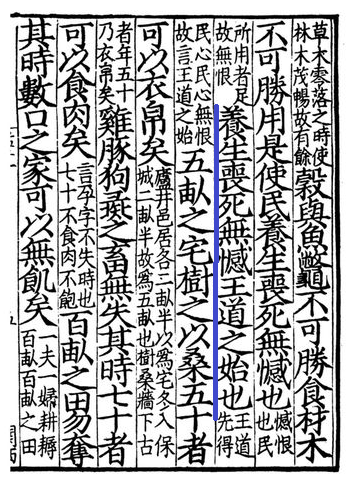 草木零落之時使林木茂暢故有餘穀與魚鼈不可勝食材木
不可勝用是使民養生喪死無憾也憾恨也民
所用者足故無恨養生喪死無憾王道之始也王道先得
民心民心無恨故言王道之始五畝之宅樹之以桑五十者
可以衣帛矣廬井邑居各二畝半以爲宅冬入保城二畝半故爲五畝也樹桑牆下古
者年五十乃衣帛矣雞豚狗彘之畜無失其時七十者
可以食肉矣言孕字不失時也七十不食肉不飽百畝之田勿奪
其時數口之家可以無飢矣一夫一婦耕耨百畝百畝之田